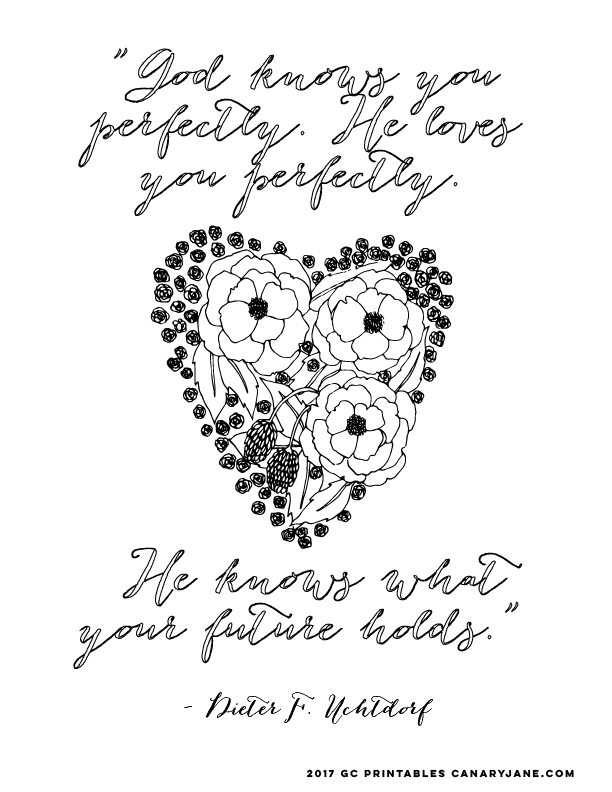 "God knows you
perfectly. He loves
you perfectly.
He knows what
your future holds."
- Dieter F. Uchtdorf
2017 GC PRINTABLES CANARYJANE.COM